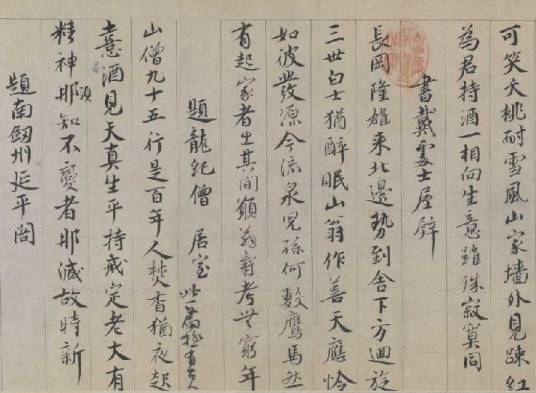 可笑夭桃耐雪風山家墻外見疎紅
為君持酒一相向生意雖殊寂寞同
書戴處士屋壁
長岡隆雄来北邊勢到舍下方迴旋
三世白士猶醉眠山翁作善天應憐
如彼發源今流泉兒孫何數鷹馬然
有起家者出其間願翁壽考無窮年
題龍紀僧居室 此一篇極有古人
山僧九十五行是百年人焚香猶夜起
憙酒見天真生平持戒定老大有
精神那須知不變者那減故時新
題南劔州延平閣